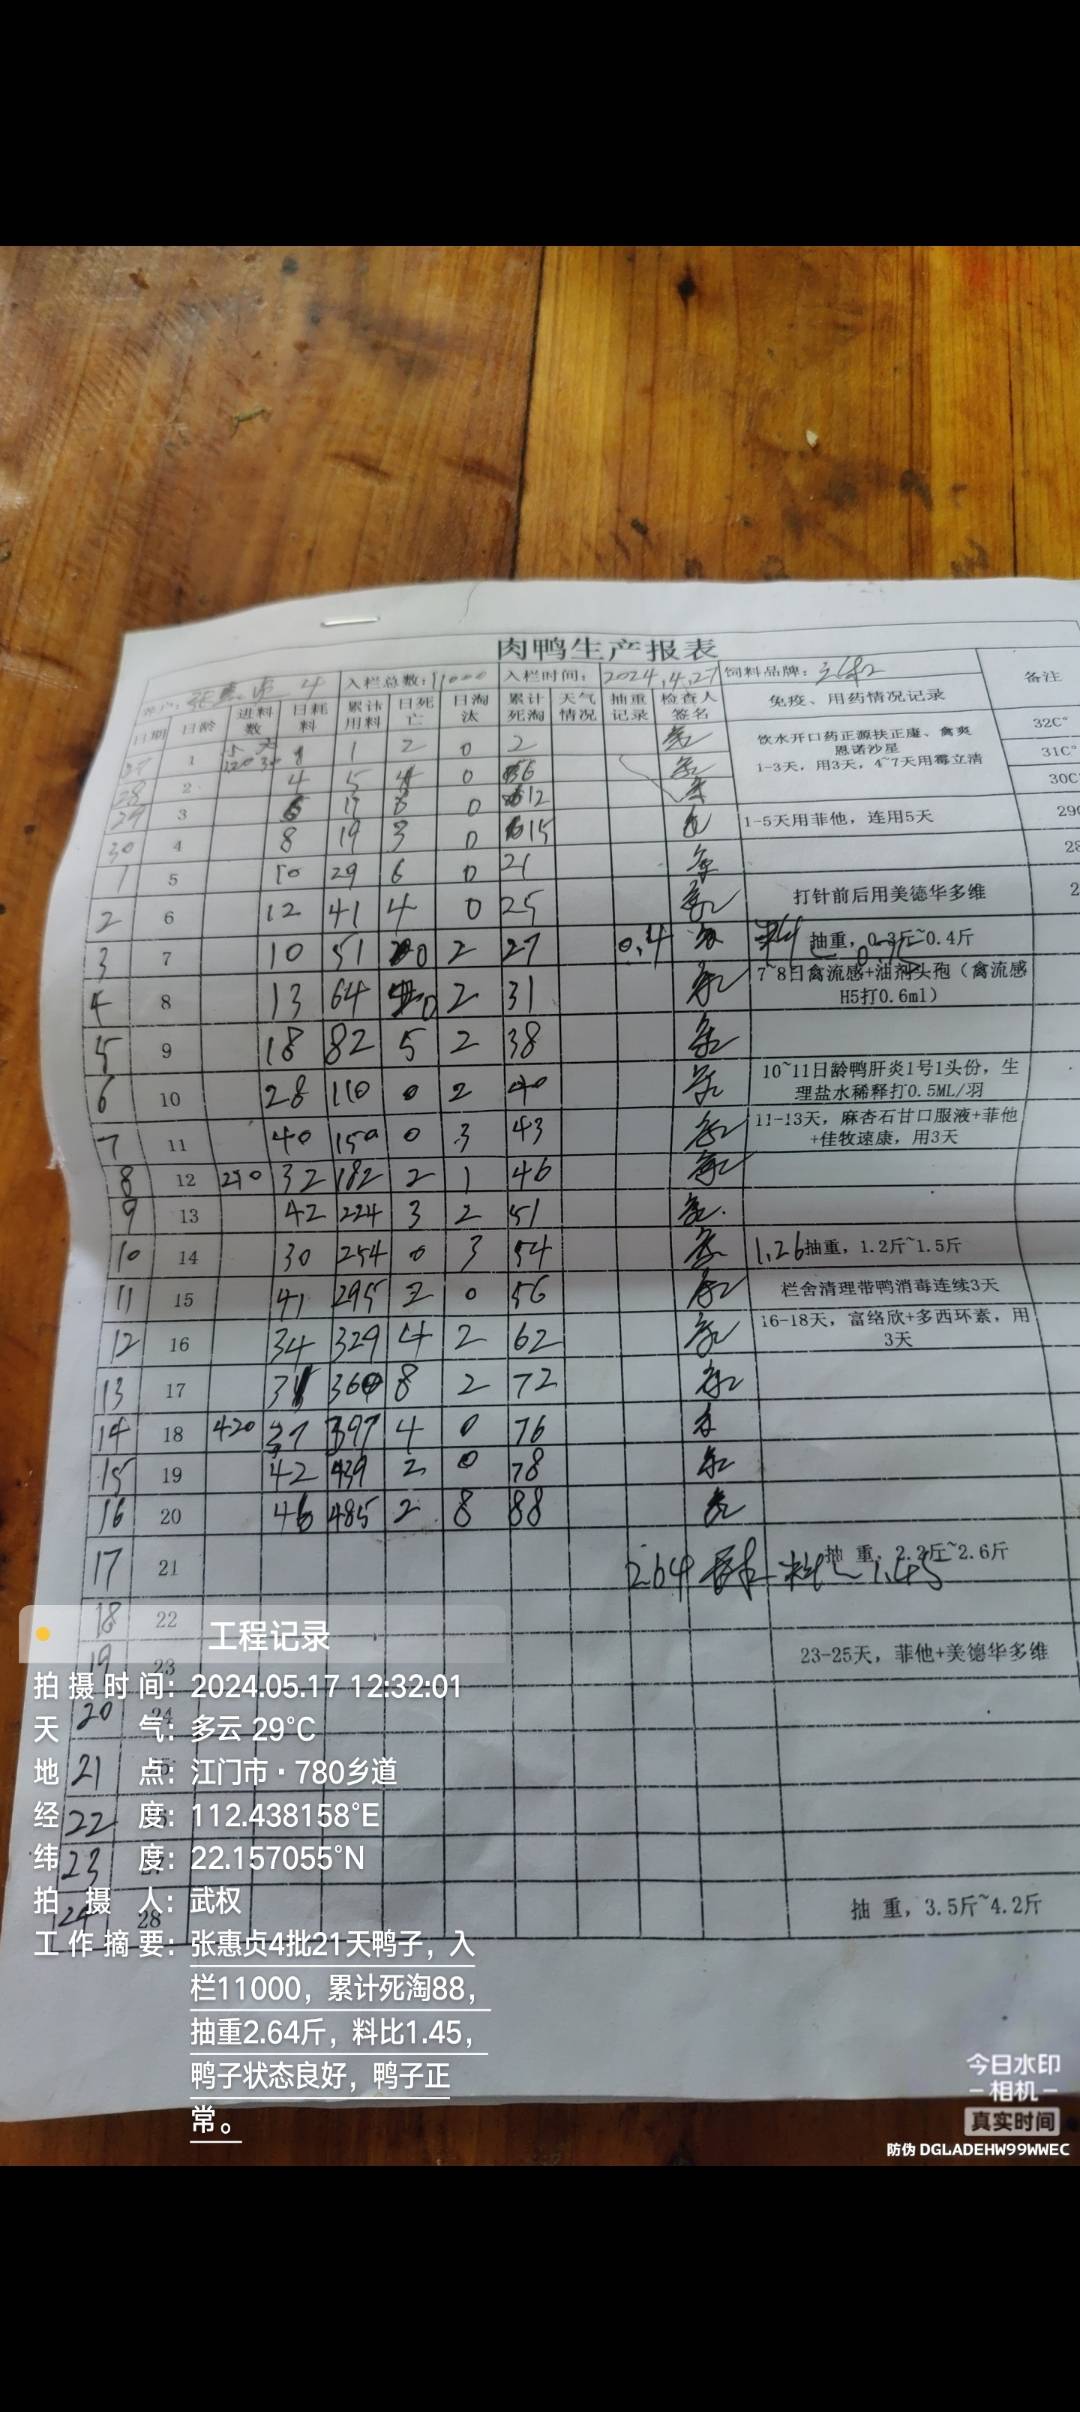 肉鸭生产报表
入栏总数:11000 入栏时间: 2024.4.27 饲料品牌:
备注
日期 日龄 进料数 日耗料 累计用料 日死亡 日淘汰 累计死淘 天气情况 抽重记录 检查人签名 免疫、用药情况记录
1 1 2 0 2 饮水开口药正源扶正康、禽爽恩诺沙星 32C°
28 2 4 5 4 0 6 1-3天,用3天,4~7天用霉立清 31C°
29 3 6 0 12 30C
30 4 8 19 3 0 15 1-5天用菲他,连用5天 29
1 5 10 29 6 0 21 28
2 6 12 41 4 0 25 打针前后用美德华多维 2
3 7 10 51 0 2 27 0.4 抽重,0.3斤~0.4斤
4 8 13 64 2 31 7~8日禽流感+油剂头孢(禽流感H5打0.6ml)
5 9 18 82 5 2 38
6 10 28 110 0 2 40 10~11日龄鸭肝炎1号1头份,生理盐水稀释打0.5ML/羽
7 11 40 150 0 3 43 11-13天,麻杏石甘口服液+菲他+佳牧速康,用3天
8 12 210 32 182 2 1 46
9 13 42 224 3 2 51
10 14 30 254 0 3 54 1.26 抽重,1.2斤~1.5斤
11 15 41 295 2 0 56 栏舍清理带鸭消毒连续3天
12 16 34 329 4 2 62 16-18天,富络欣+多西环素,用3天
13 17 31 360 8 2 72
14 18 420 37 397 4 0 76
15 19 42 439 2 0 78
16 20 46 485 2 8 88
17 21 2.64 料比1.45 抽 重,2.2斤~2.6斤
18 22
19 23 23-25天,菲他+美德华多维
20 24
21
22
23
24 28 抽 重,3.5斤~4.2斤
工程记录
拍摄时间: 2024.05.17 12:32:01
天 气: 多云 29°C
地 点: 江门市·780乡道
经 度: 112.438158°E
纬 度: 22.157055°N
拍 摄 人: 武权
工作摘要: 张惠贞4批21天鸭子,入
栏11000,累计死淘88,
抽重2.64斤,料比1.45,
鸭子状态良好,鸭子正
常。
今日水印
-相机-
真实时间
防伪 DGLADEHW99WWEC